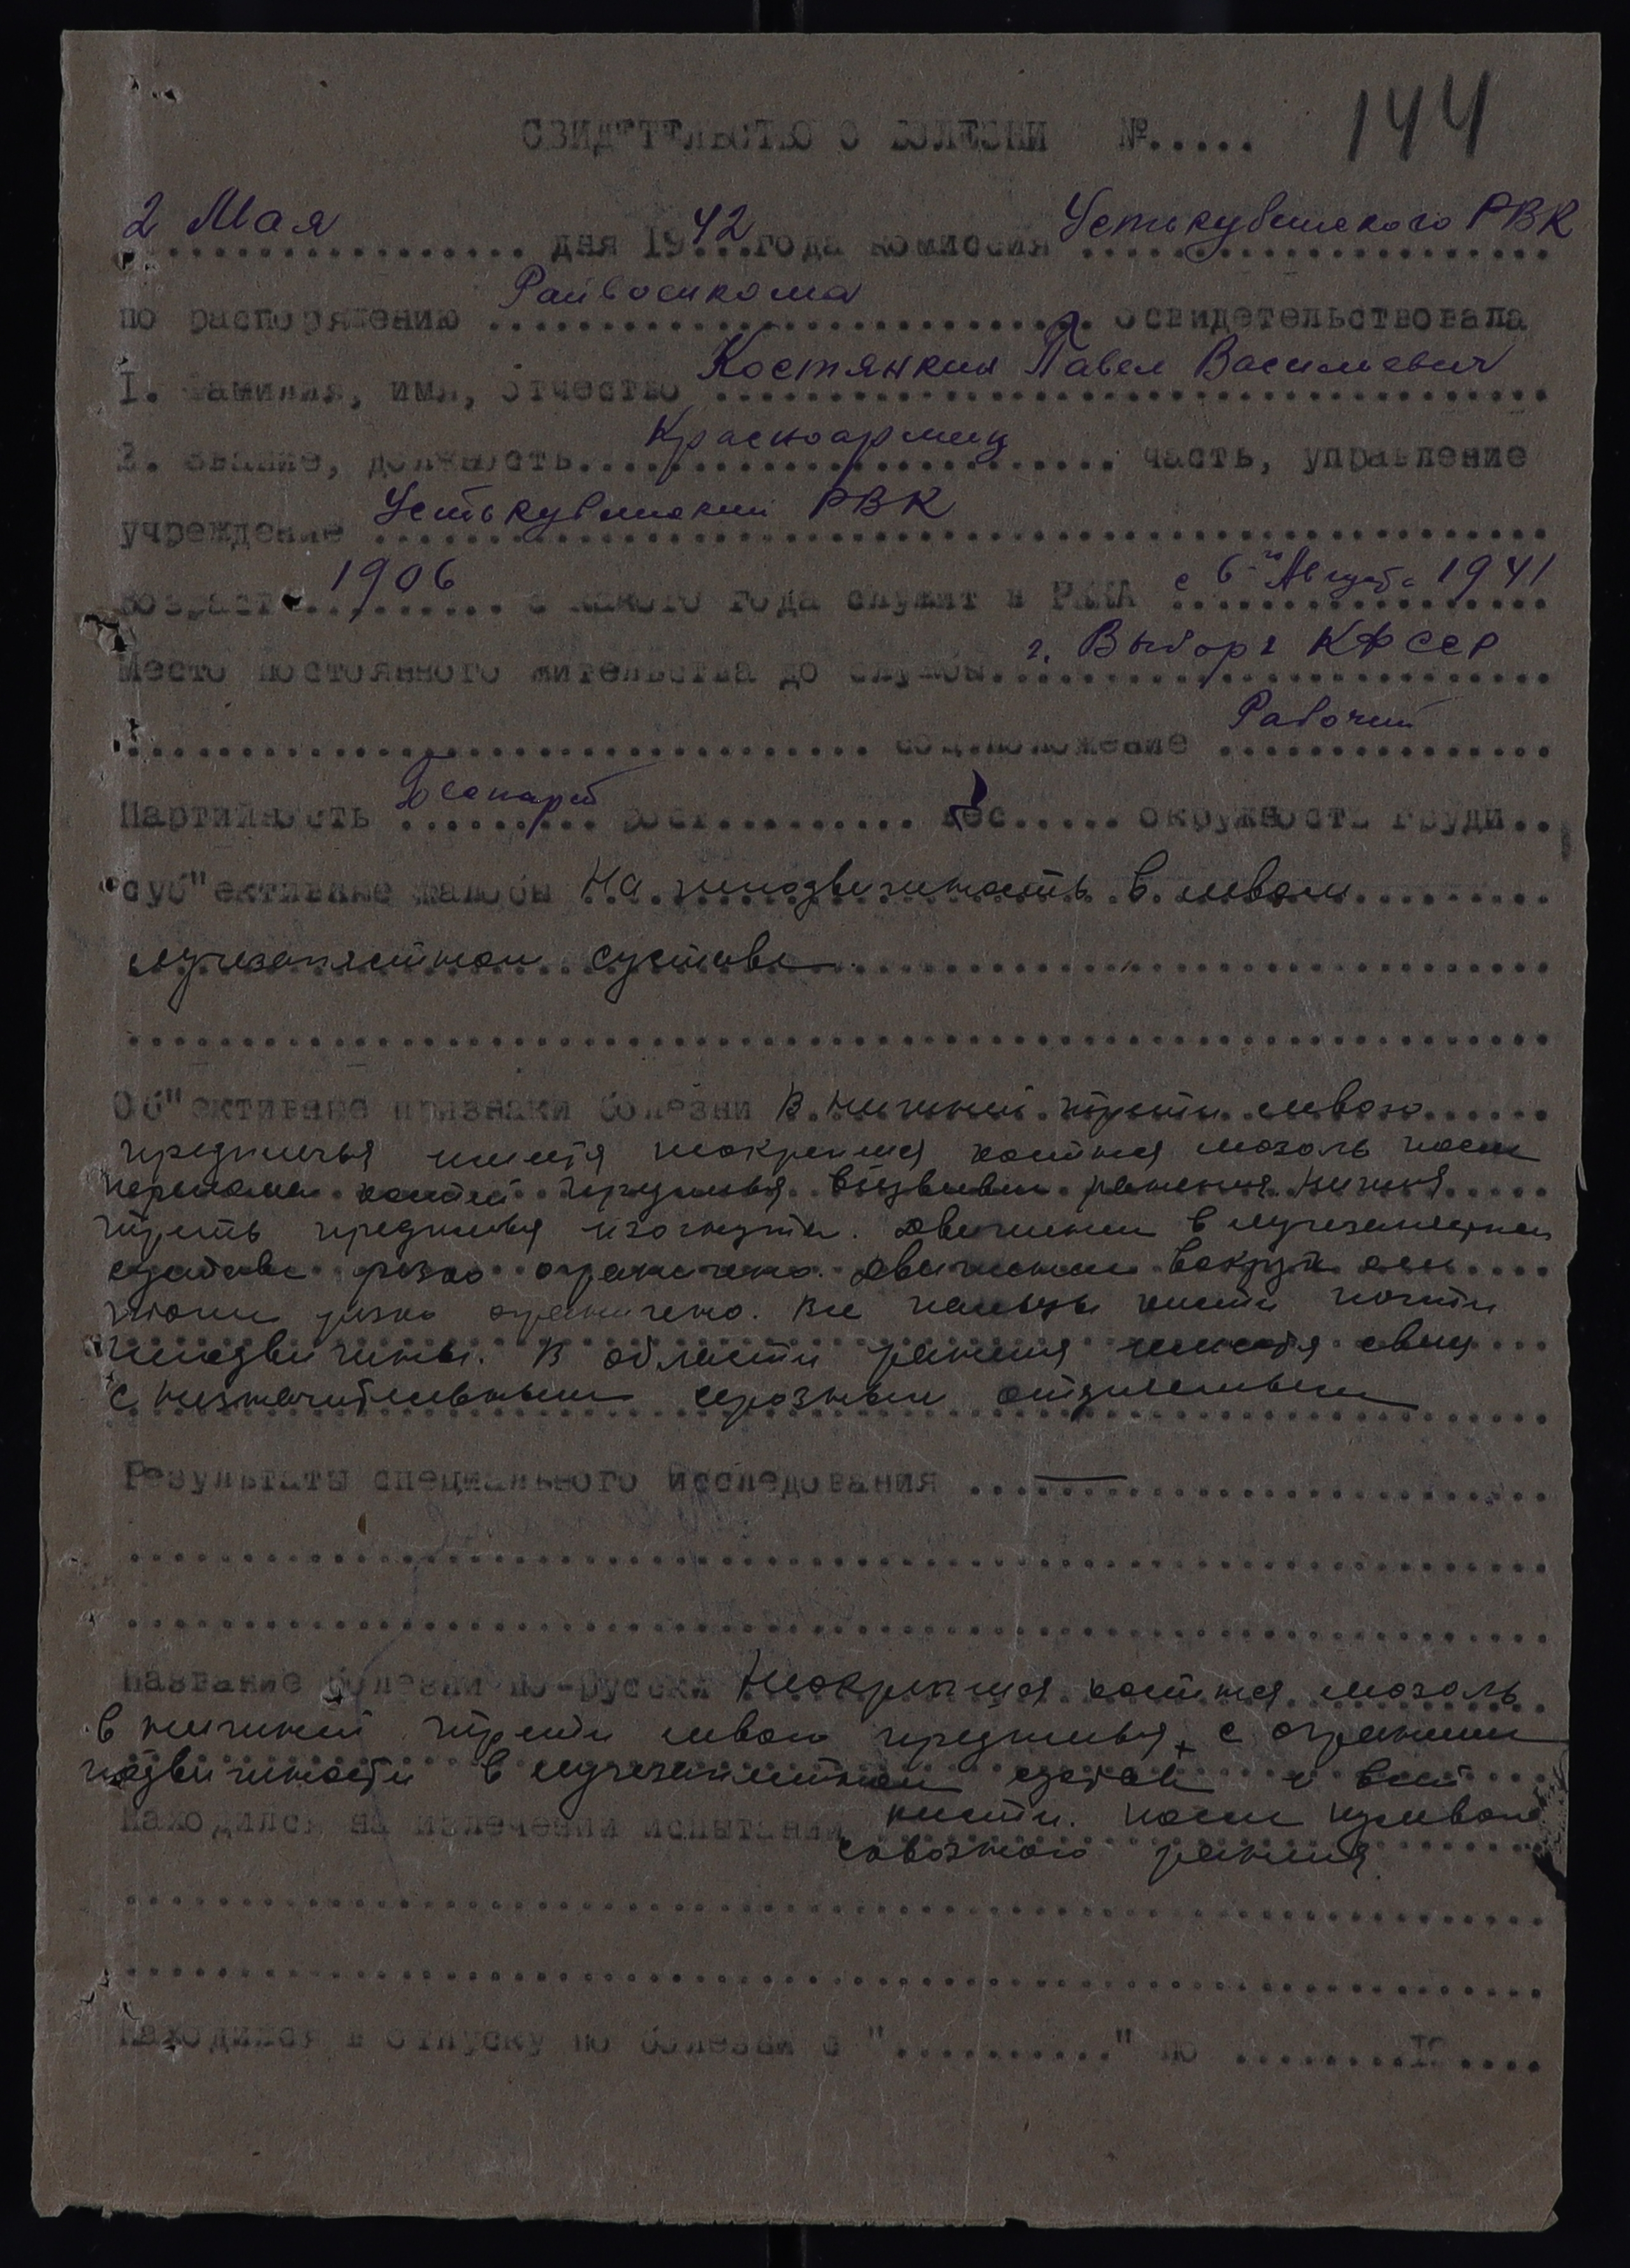 СВИДЕТЕЛЬСТВО О БОЛЕЗНИ №..... 144
2 Мая дня 1942 года комиссия Устькубинского РВК
по распоряжению Райвоенкома освидетельствовала
1. Фамилия, имя, отчество Костянкин Павел Васильевич
2. Звание, должность Красноармеец часть, управление
учреждение Устькубинский РВК
Возраст 1906 с какого года служит в РККА с 6-го Августа 1941
Место постоянного жительства до службы г. Выборг КФССР
соц.положение Рабочий
Партийность Беспарт рост.......... вес..... окружность груди..
Суб"ективные жалобы На неподвижность в левом
лучезапястном суставе.
Об"ективные признаки болезни В нижней трети левого
предплечья имеется неокрепшая костная мозоль после
перелома костей предплечья ранения. Нижняя
треть предплечья изогнута. Движения в лучезапястном
суставе резко ограничено. Движения вокруг оси
резко ограничено. Все пальцы кисти почти
неподвижны. В области ранения имеется свищ
с незначительным серозным отделяемым
Результаты специального исследования —
Название болезни по-русски Неокрепшая костная мозоль
в нижней трети левого предплечья, с огранич
подвижности в лучезапястном суставе и всей
Находился на излечении испытании кисти. После пулевого
сквозного ранения.
Находился в отпуску по болезни с "..........." по ........19....